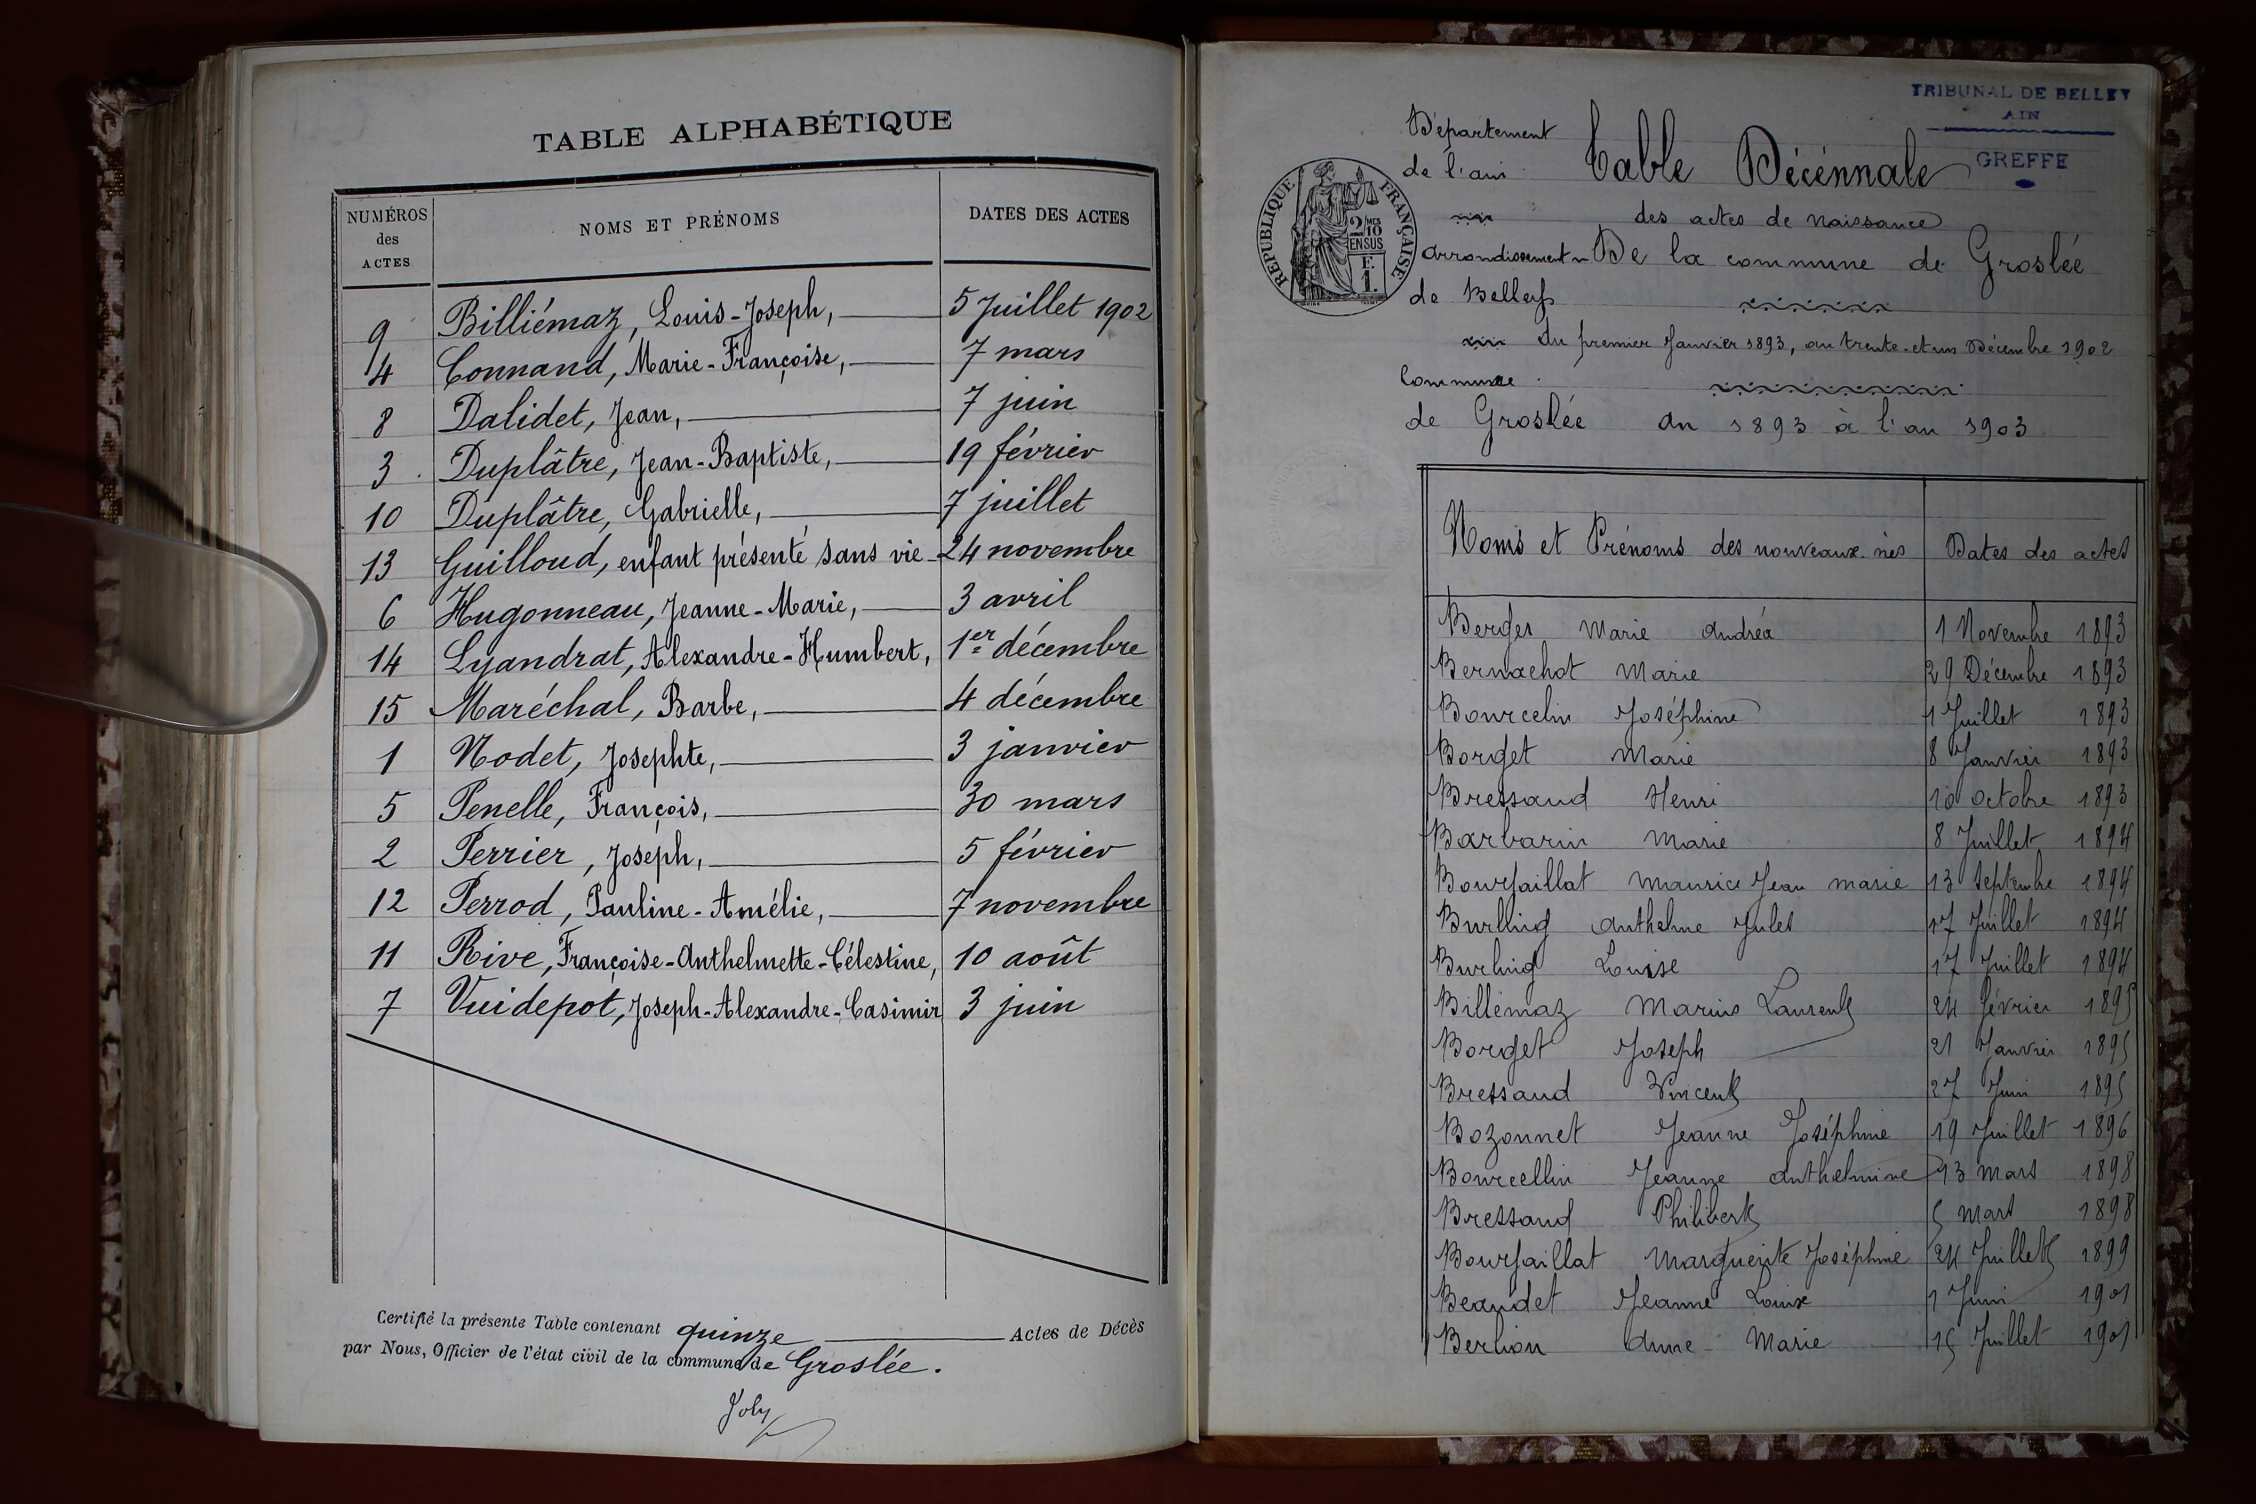 TABLE ALPHABÉTIQUE
NUMÉROS des ACTES NOMS ET PRÉNOMS DATES DES ACTES
9 Billiémaz, Louis-Joseph, 5 Juillet 1902
4 Connand, Marie-Françoise, 7 mars
8 Dalidet, Jean, 7 juin
3 Duplâtre, Jean-Baptiste, 19 février
10 Duplâtre, Gabrielle, 7 juillet
13 Guilloud, enfant présenté sans vie 24 novembre
6 Hugonneau, Jeanne-Marie, 3 avril
14 Lyandrat, Alexandre-Humbert, 1er décembre
15 Maréchal, Barbe, 4 décembre
1 Nodet, Josephte, 3 janvier
5 Penelle, François, 30 mars
2 Perrier, Joseph, 5 février
12 Perrod, Pauline-Amélie, 7 novembre
11 Rive, Françoise-Anthelmette-Célestine, 10 août
7 Vuidepot, Joseph-Alexandre-Casimir 3 juin
Certifié la présente Table contenant quinze Actes de Décès
par Nous, Officier de l'état civil de la commune de Groslée.
Joly
TRIBUNAL DE BELLEY
AIN
GREFFE
RÉPUBLIQUE FRANÇAISE
2/10 MES
EN SUS
F.
1.
Département
de l'ain Table Décénnale
des actes de naissance
arrondissement De la commune de Groslée
de Belley
du premier Janvier 1893, au trente-et-un Décembre 1902
Commune
de Groslée an 1893 à l'an 1903
Noms et Prénoms des nouveaux-nés Dates des actes
Berger Marie Andréa 1 Novembre 1893
Bernachot Marie 29 Décembre 1893
Bourcelin Joséphine 1 Juillet 1893
Borget Marie 8 Janvier 1893
Bressand Henri 10 octobre 1893
Barbarin Marie 8 Juillet 1894
Bourfaillat Maurice Jean Marie 13 Septembre 1894
Burling Anthelme Jules 17 Juillet 1894
Burling Louise 17 Juillet 1894
Billémaz Marius Laurent 24 février 1895
Borget Joseph 21 Janvier 1895
Bressand Vincent 27 Juin 1895
Bozonnet Jeanne Joséphine 19 Juillet 1896
Bourcellin Jeanne anthelmine 13 Mars 1898
Bressand Philibert 5 Mars 1898
Bourfaillat Marguerite Joséphine 24 Juillet 1899
Beaudet Jeanne Louise 1 Juin 1901
Berlion Anne Marie 15 Juillet 1901